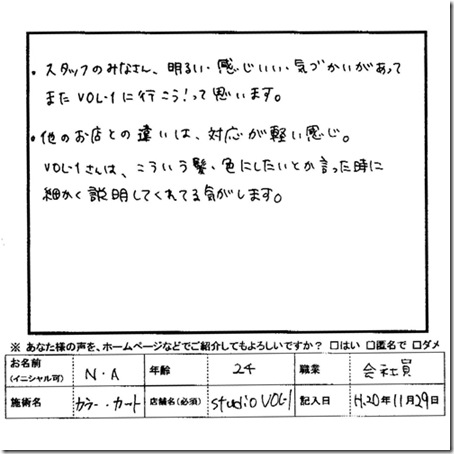 ・スタッフのみなさん、明るい・感じいい・気づかいがあって
またVOL-1に行こう!って思います。
・他のお店との違いは、対応が軽い感じ。
VOL-1さんは、こういう髪、色にしたいとか言った時に
細かく説明してくれてる気がします。
※ あなた様の声を、ホームページなどでご紹介してもよろしいですか? □はい □匿名で □ダメ
お名前(イニシャル可) N・A 年齢 24 職業 会社員
施術名 カラー・カット 店舗名(必須) studio VOL-1 記入日 H.20年11月29日